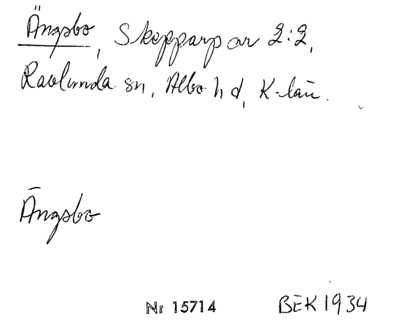 Ängsbo, Skepparp av 2:2,
Ravlunda sn, Albo hd, K-län.
Ängsbo
Nr 15714 BEK 1934